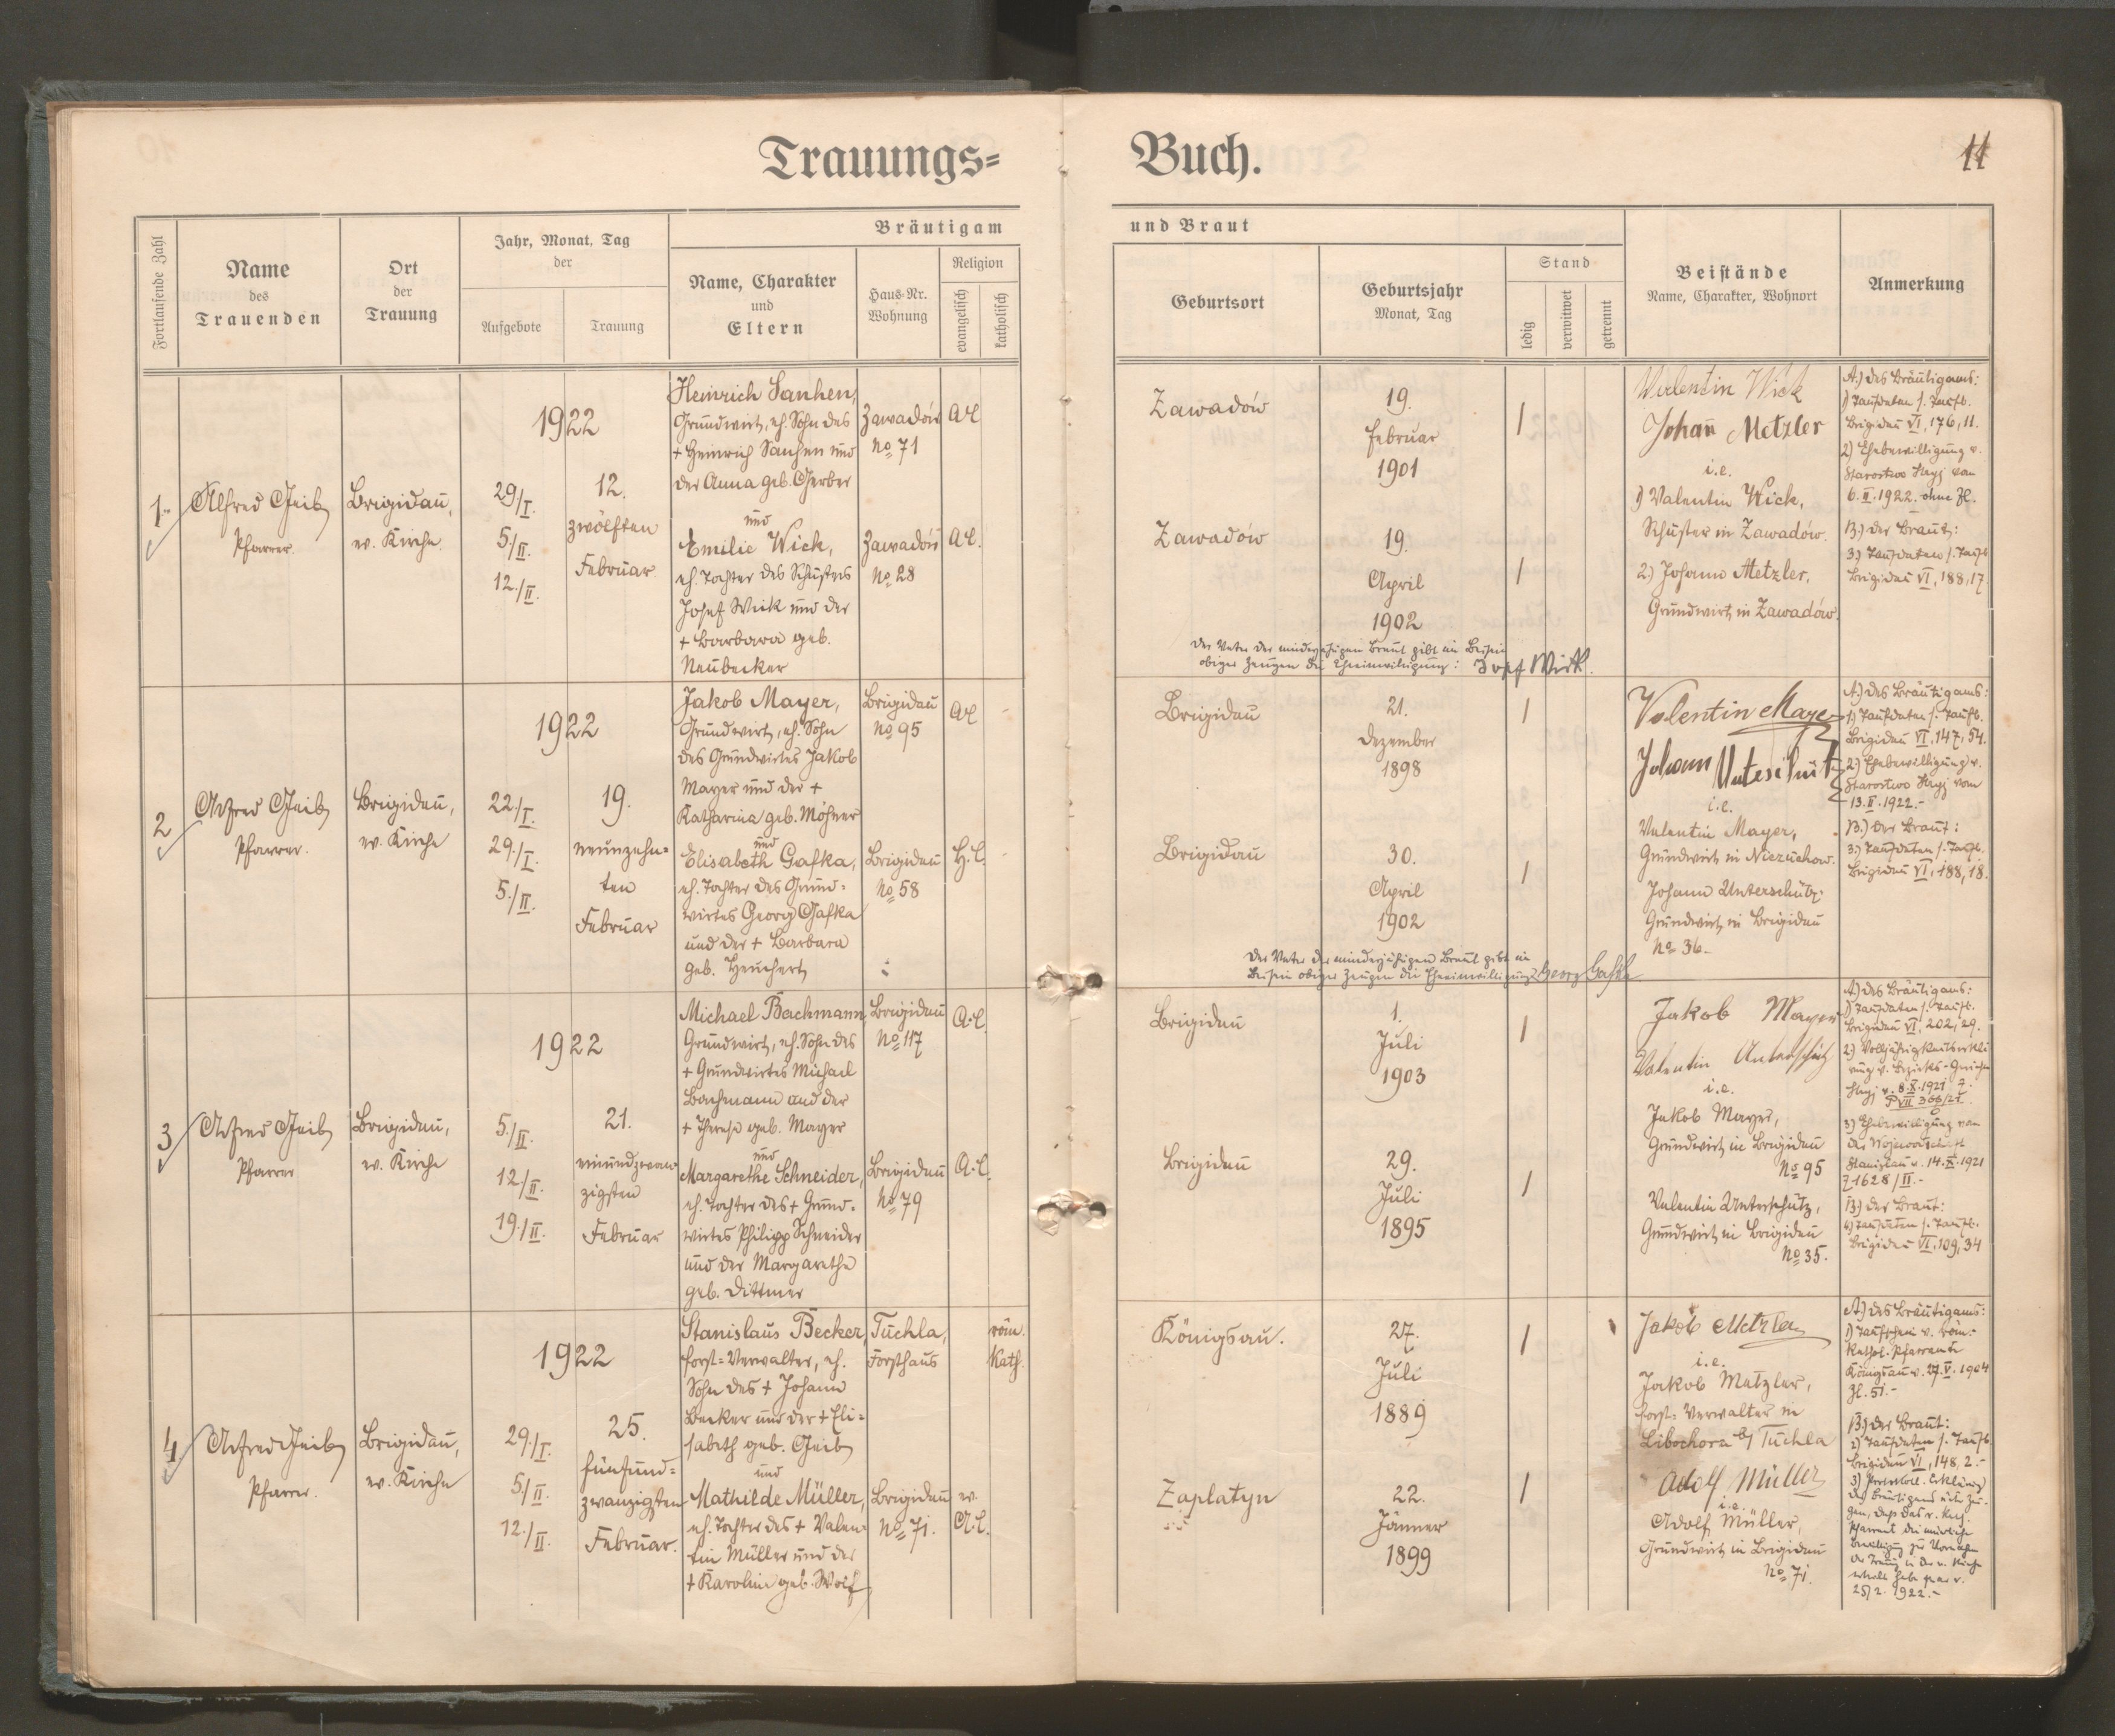 Trauungs=
Buch.
11
Fortlaufende Zahl
Name
des
Trauenden
Ort
der
Trauung
Jahr, Monat, Tag
der
Aufgebote
Trauung
Bräutigam
Name, Charakter
und
Eltern
Haus-Nr.
Wohnung
Religion
evangelisch
katholisch
und Braut
Geburtsort
Geburtsjahr
Monat, Tag
Stand
ledig
verwitwet
getrennt
Beistände
Name, Charakter, Wohnort
Anmerkung
1.
Alfred Geib
Pfarrer.
Brigidau,
ev. Kirche.
1922
29/I.
5/II.
12./II.
12.
zwölften
Februar
Heinrich Sanhen,
Grundwirt, eh. Sohn des
+ Heinrich Sanhen und
der Anna geb. Gerber
und
Emilie Wick,
eh. Tochter des Schusters
Josef Wick und der
+ Barbara geb.
Neubecker
Zawadów
No 71
Zawadów
No 28
A.C.
A.C.
Zawadów
19.
Februar
1901
Zawadów
19.
April
1902
Der Vater der minderjährigen Braut gibt im Beisein
obiger Zeugen die Eheeinwilligung: Josef Wick.
Valentin Wick
Johan̄ Metzler
i.e.
1) Valentin Wick,
Schuster in Zawadów.
2.) Johann Metzler,
Grundwirt in Zawadów.
A.) des Bräutigams:
1) Taufdaten s. Taufb.
Brigidau VI, 176, 11.
2) Ehebewilligung v.
Starostwo Stryj vom
6.II.1922. ohne Zl.
B.) der Braut:
3.) Taufdaten s. Taufb
Brigidau VI, 188, 17.
2
Alfred Geib
Pfarrer.
Brigidau,
ev. Kirche
1922
22./I.
29./I.
5./II.
19.
neunzehn=
ten
Februar
Jakob Mayer,
Grundwirt, eh. Sohn
des Grundwirtes Jakob
Mayer und der +
Katharina geb. Möhner
und
Elisabeth Gafka,
eh. Tochter des Grund=
wirtes Georg Gafka
und der + Barbara
geb. Heuchert
Brigidau
No 95
Brigidau
No 58
A.C.
H.C.
Brigidau
21.
Dezember
1898
Brigidau
30.
April
1902
Der Vater der minderjährigen Braut gibt im
Beisein obiger Zeugen die Eheeinwilligung: Georg Gafka
Valentin Mayer
Johann
i.e.
Valentin Mayer,
Grundwirt in Niezuchow.
Johann Unterschütz
Grundwirt in Brigidau
No 36.
A.) des Bräutigams:
1) Taufdaten s. Taufb.
Brigidau VI, 147, 54.
2.) Ehebewilligung v.
Starostwo Stryj vom
13.II.1922.-
B.) der Braut:
3.) Taufdaten s. Taufb.
Brigidau VI, 188, 18.
3
Alfred Geib
Pfarrer
Brigidau,
ev. Kirche
1922
5./II.
12./II.
19./II.
21.
einundzwan=
zigsten
Februar
Michael Bachmann,
Grundwirt, eh. Sohn des
+ Grundwirtes Michael
Bachmann und der
+ Therese geb. Mayer
und
Margarethe Schneider,
eh. Tochter des + Grund=
wirtes Philipp Schneider
und der Margarethe
geb. Dittmer
Brigidau
No 117
Brigidau
No 79
A.C.
A.C.
Brigidau
1.
Juli
1903
Brigidau
29.
Juli
1895
Jakob Mayer
Valentin Unterschütz
i.e.
Jakob Mayer,
Grundwirt in Brigidau
No 95
Valentin Unterschütz,
Grundwirt in Brigidau
No 35.
A.) des Bräutigams:
1) Taufdaten s. Taufb.
Brigidau VI, 202, 29.
2.) Volljährigkeitserklä
rung v. Bezirks-Gericht
Stryj v. 8.X.1921
P VII 366/21
3) Ehebewilligung von
der Wojewodschaft
Stanislau v. 14.X.1921
Z 1628/II.-
B.) der Braut:
4.) Taufdaten s. Taufb.
Brigidau VI, 109, 34
4
Alfred Geib
Pfarrer.
Brigidau,
ev. Kirche
1922
29./I.
5./II.
12./II.
25.
fünfund=
zwanzigsten
Februar.
Stanislaus Becker,
Forst=Verwalter, eh.
Sohn des + Johann
Becker und der + Eli=
sabeth geb. Geib
und
Mathilde Müller,
eh. Tochter des + Valen=
tin Müller und der
+ Karolin geb. Wolf
Tuchla,
Forsthaus
Brigidau
No 71.
röm.
kath.
ev.
A.C.
Königsau.
27.
Juli
1889
Zaplatyn
22.
Jänner
1899
Jakob Metzler
i.e.
Jakob Metzler,
Forst=Verwalter in
Libochora b/ Tuchla
Adolf Müller
i.e.
Adolf Müller,
Grundwirt in Brigidau
No 71.
A.) des Bräutigams:
1) Taufschein v. röm.-
kathol. Pfarramte
Königsau v. 27.V.1904
Zl. 51.-
B.) der Braut:
2) Taufdaten s. Taufb
Brigidau VI, 148, 2.-
3) Protokoll. Erklärung
des Bräutigams u. der Zeu-
gen, dass das r. kath.
Pfarramt die mündliche
Bewilligung zur Vornahme
der Trauung in der ev. Kirche
erteilt habe
25/2. 1922.-